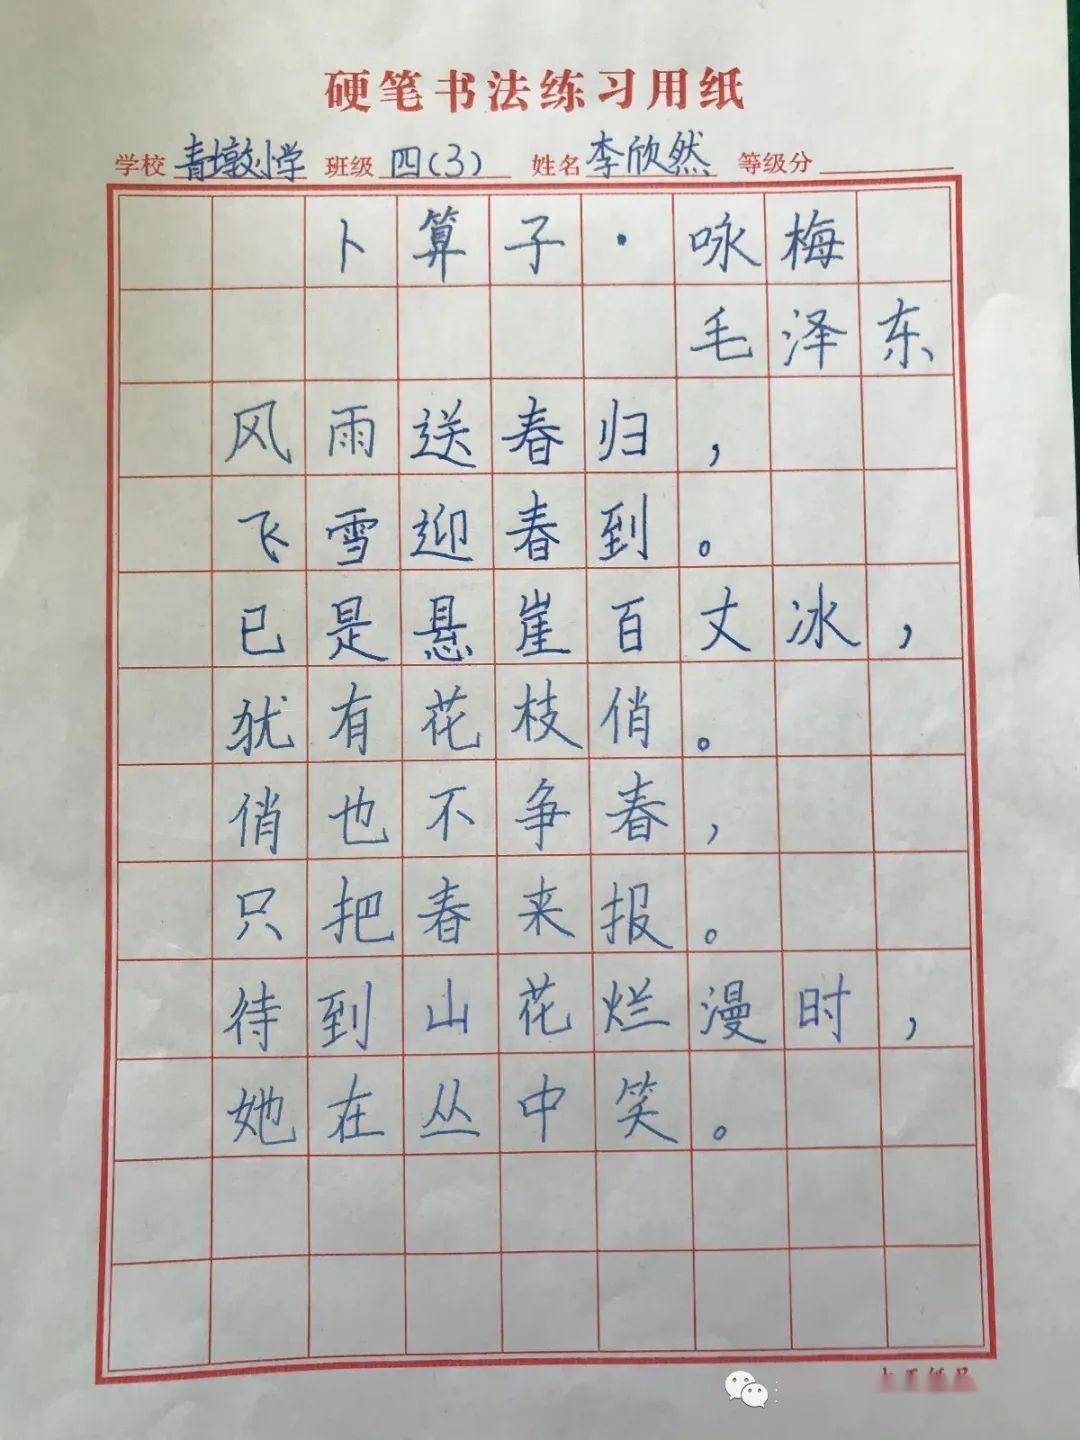 硬笔书法练习用纸
学校 青墩小学 班级 四(3) 姓名 李欣然 等级分
卜算子·咏梅
毛泽东
风雨送春归，
飞雪迎春到。
已是悬崖百丈冰，
犹有花枝俏。
俏也不争春，
只把春来报。
待到山花烂漫时，
她在丛中笑。